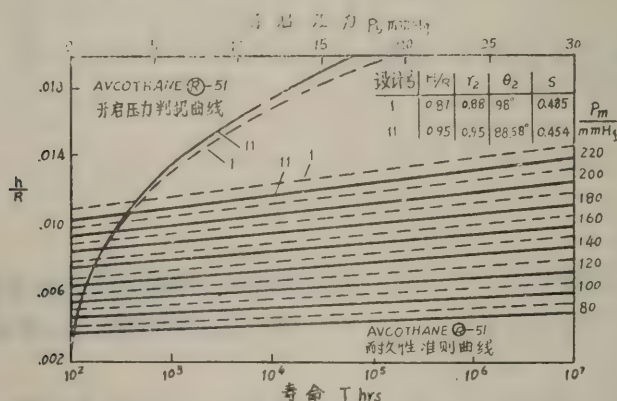 开启压力 P, mmHg
0 5 10 15 20 25 30
AVCOTHANE Ⓡ-51
开启压力判据曲线
设计号 H/R r₂ θ₂ S
1 0.81 0.88 98° 0.485
11 0.95 0.95 88.58° 0.454
Pm
mmHg
h
R
.018
.014
.010
.006
.002
11
1
11
1
220
200
180
160
140
120
100
80
AVCOTHANE Ⓡ-51
耐久性准则曲线
10² 10³ 10⁴ 10⁵ 10⁶ 10⁷
寿命 T hrs